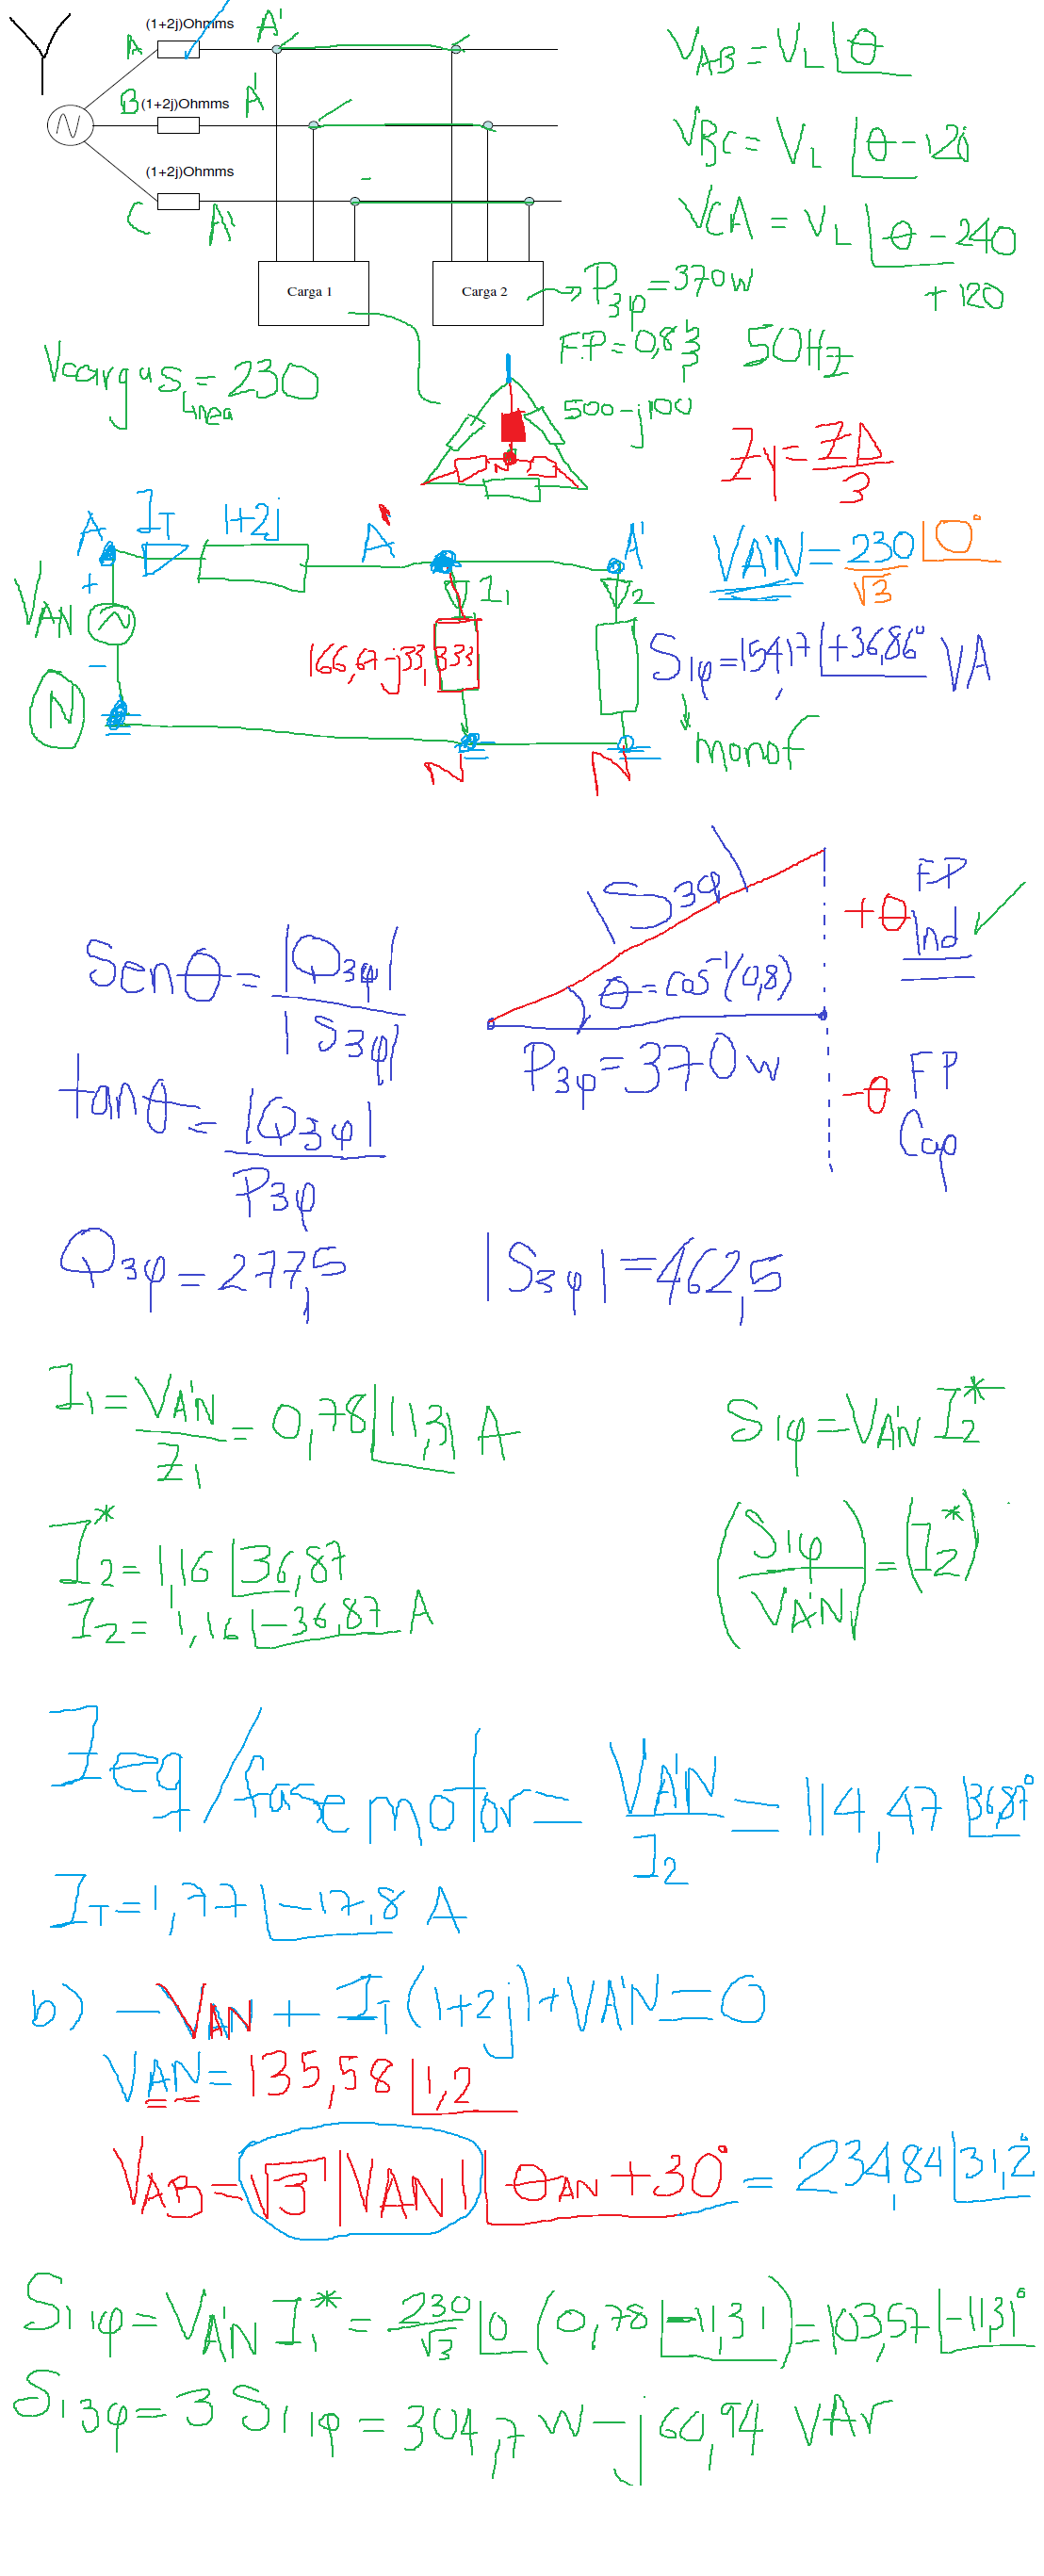 (1+2j)Ohmms
A A'
B (1+2j)Ohmms A'
(1+2j)Ohmms
C A'
N
Carga 1
Carga 2
VAB = VL∠θ
VBC = VL∠θ-120
VCA = VL∠θ-240
+120
P3φ = 370w
FP = 0,8 50Hz
Vcargas = 230
Linea
500-j100
N
Zy = ZΔ/3
A IT 1+2j A' A'
VA'N = 230/√3 ∠0°
+ VAN -
I1 2
166,67-j33,333
S1φ = 154,17∠+36,86° VA
monof
N N N
|S3φ|
+θ FP Ind
θ = cos⁻¹(0,8)
P3φ = 370w
-θ FP Cap
Senθ = |Q3φ|/|S3φ|
tanθ = |Q3φ|/P3φ
Q3φ = 277,5 |S3φ| = 462,5
I1 = VA'N/Z1 = 0,78∠11,31 A
S1φ = VA'N I2*
I2* = 1,16∠36,87
(S1φ/VA'N) = (I2*)
I2 = 1,16∠-36,87 A
Zeq/fase motor = VA'N/I2 = 114,47∠36,87°
IT = 1,77∠-17,8 A
b) -VAN + IT(1+2j) + VA'N = 0
VAN = 135,58∠1,2
VAB = √3|VAN|∠θAN+30° = 234,84∠31,2°
S1 1φ = VA'N I1* = 230/√3∠0 (0,78∠-11,31) = 103,57∠-11,31°
S1 3φ = 3 S1 1φ = 304,7w - j60,94 VAr